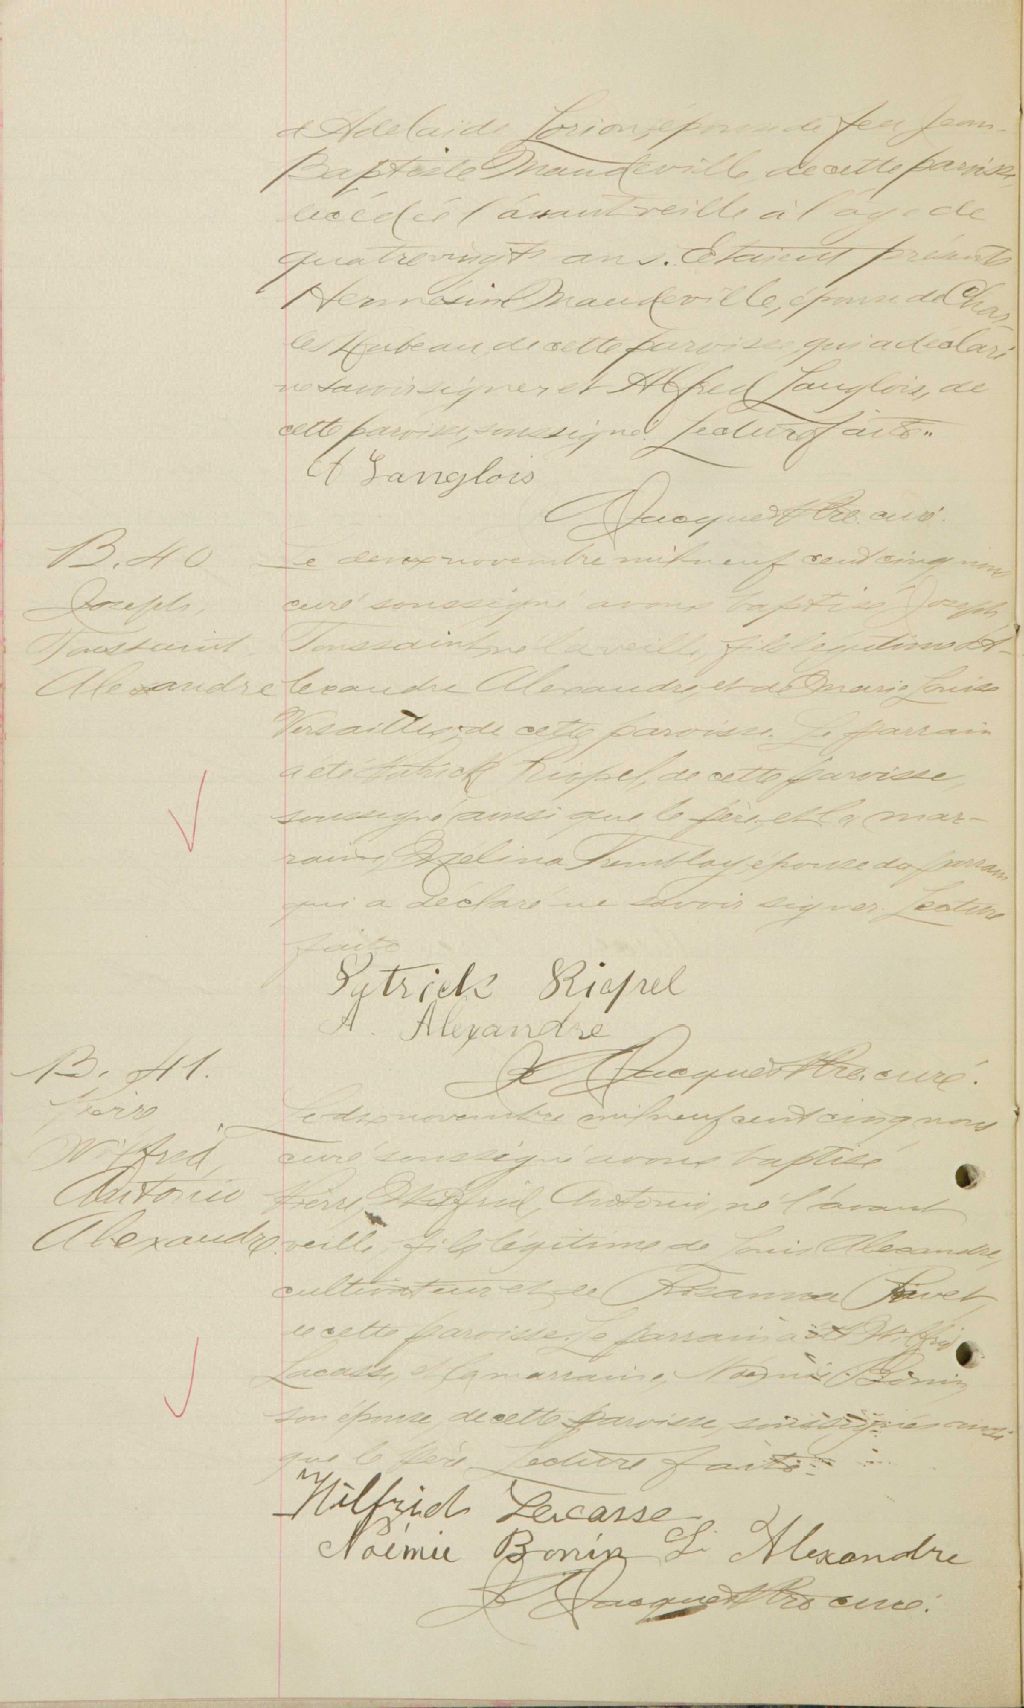 d'Adelaide Lorion, épouse de feu Jean-
Baptiste Mandeville, de cette paroisse,
décédée l'avant veille à l'age de
quatrevingts ans. Etaient présents
Hermésine Mandeville, épouse de Char-
les Hubeau, de cette paroisse, qui a déclaré
ne savoir signer, et Alfred Langlois, de
cette paroisse, soussigné. Lecture faite.
A Langlois
Jacques Ptre. curé.
B. 40
Joseph,
Toussaint
Alexandre
Le deux novembre mil neuf cent cinq nous
curé soussigné avons baptisé Joseph
Toussaint, né la veille, fils légitime d'A-
lexandre Alexandre, et de Marie Louise
Versailles, de cette paroisse. Le parrain
a été Patrick Riopel, de cette paroisse,
soussigné ainsi que le père, et la mar-
raine, Exelina Tremblay, épouse du parrain
qui a déclaré ne savoir signer. Lecture
faite
Patrick Riopel
A. Alexandre
Jacques Ptre. curé.
B. 41.
Pierre
Wilfrid,
Antonio
Alexandre
Le dix novembre mil neuf cent cinq nous
curé soussigné avons baptisé
Pierre, Wilfrid, Antonio, né l'avant
veille, fils légitime de Louis Alexandre,
cultivateur et de Rosanna Rivet,
de cette paroisse. Le parrain a été Wilfrid
Lacasse, et la marraine, Noémie Bonin,
son épouse, de cette paroisse, soussignés ainsi
que le père. Lecture faite.
Wilfrid Lacasse
Noémie Bonin L. Alexandre
Jacques Ptre curé.